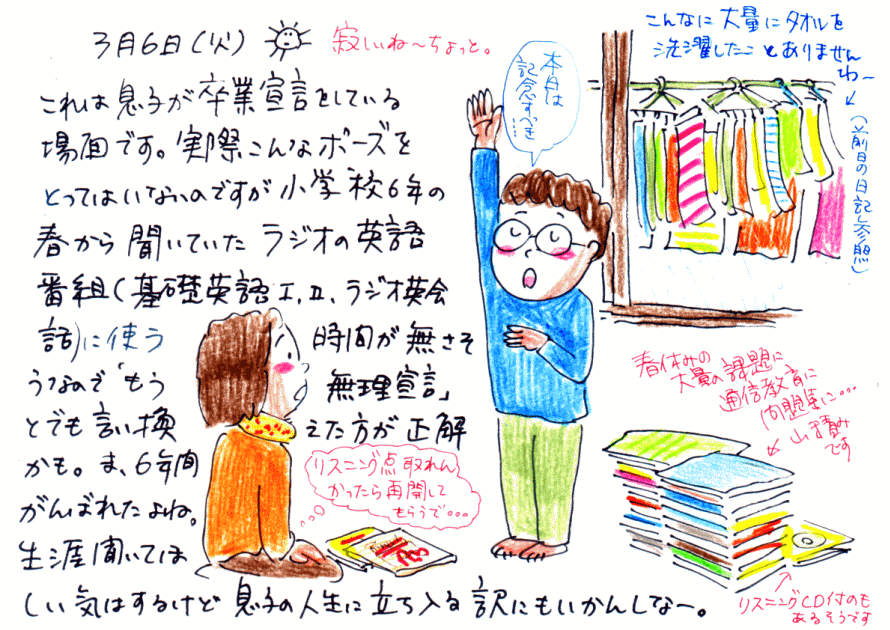 3月6日(火)
寂しいね〜ちょっと。
これは息子が卒業宣言をしている
場面です。実際こんなポーズを
とってはいないのですが小学校6年の
春から聞いていたラジオの英語
番組(基礎英語I、II、ラジオ英会
話)に使う時間が無さそ
うなので「もう無理宣言」
とでも言い換えた方が正解
かも。ま、6年間
がんばれたよね。
生涯聞いてほ
しい気はするけど息子の人生に立ち入る訳にもいかんしなー。
本日は
記念すべき
…
こんなに大量にタオルを
洗濯したことありません
わ〜
(前日の日記参照)
リスニング点取れん
かったら再開して
もらうで…
春休みの
大量の課題に
通信教育に
問題集に…
山積み
です
リスニングCD付のも
あるそうです